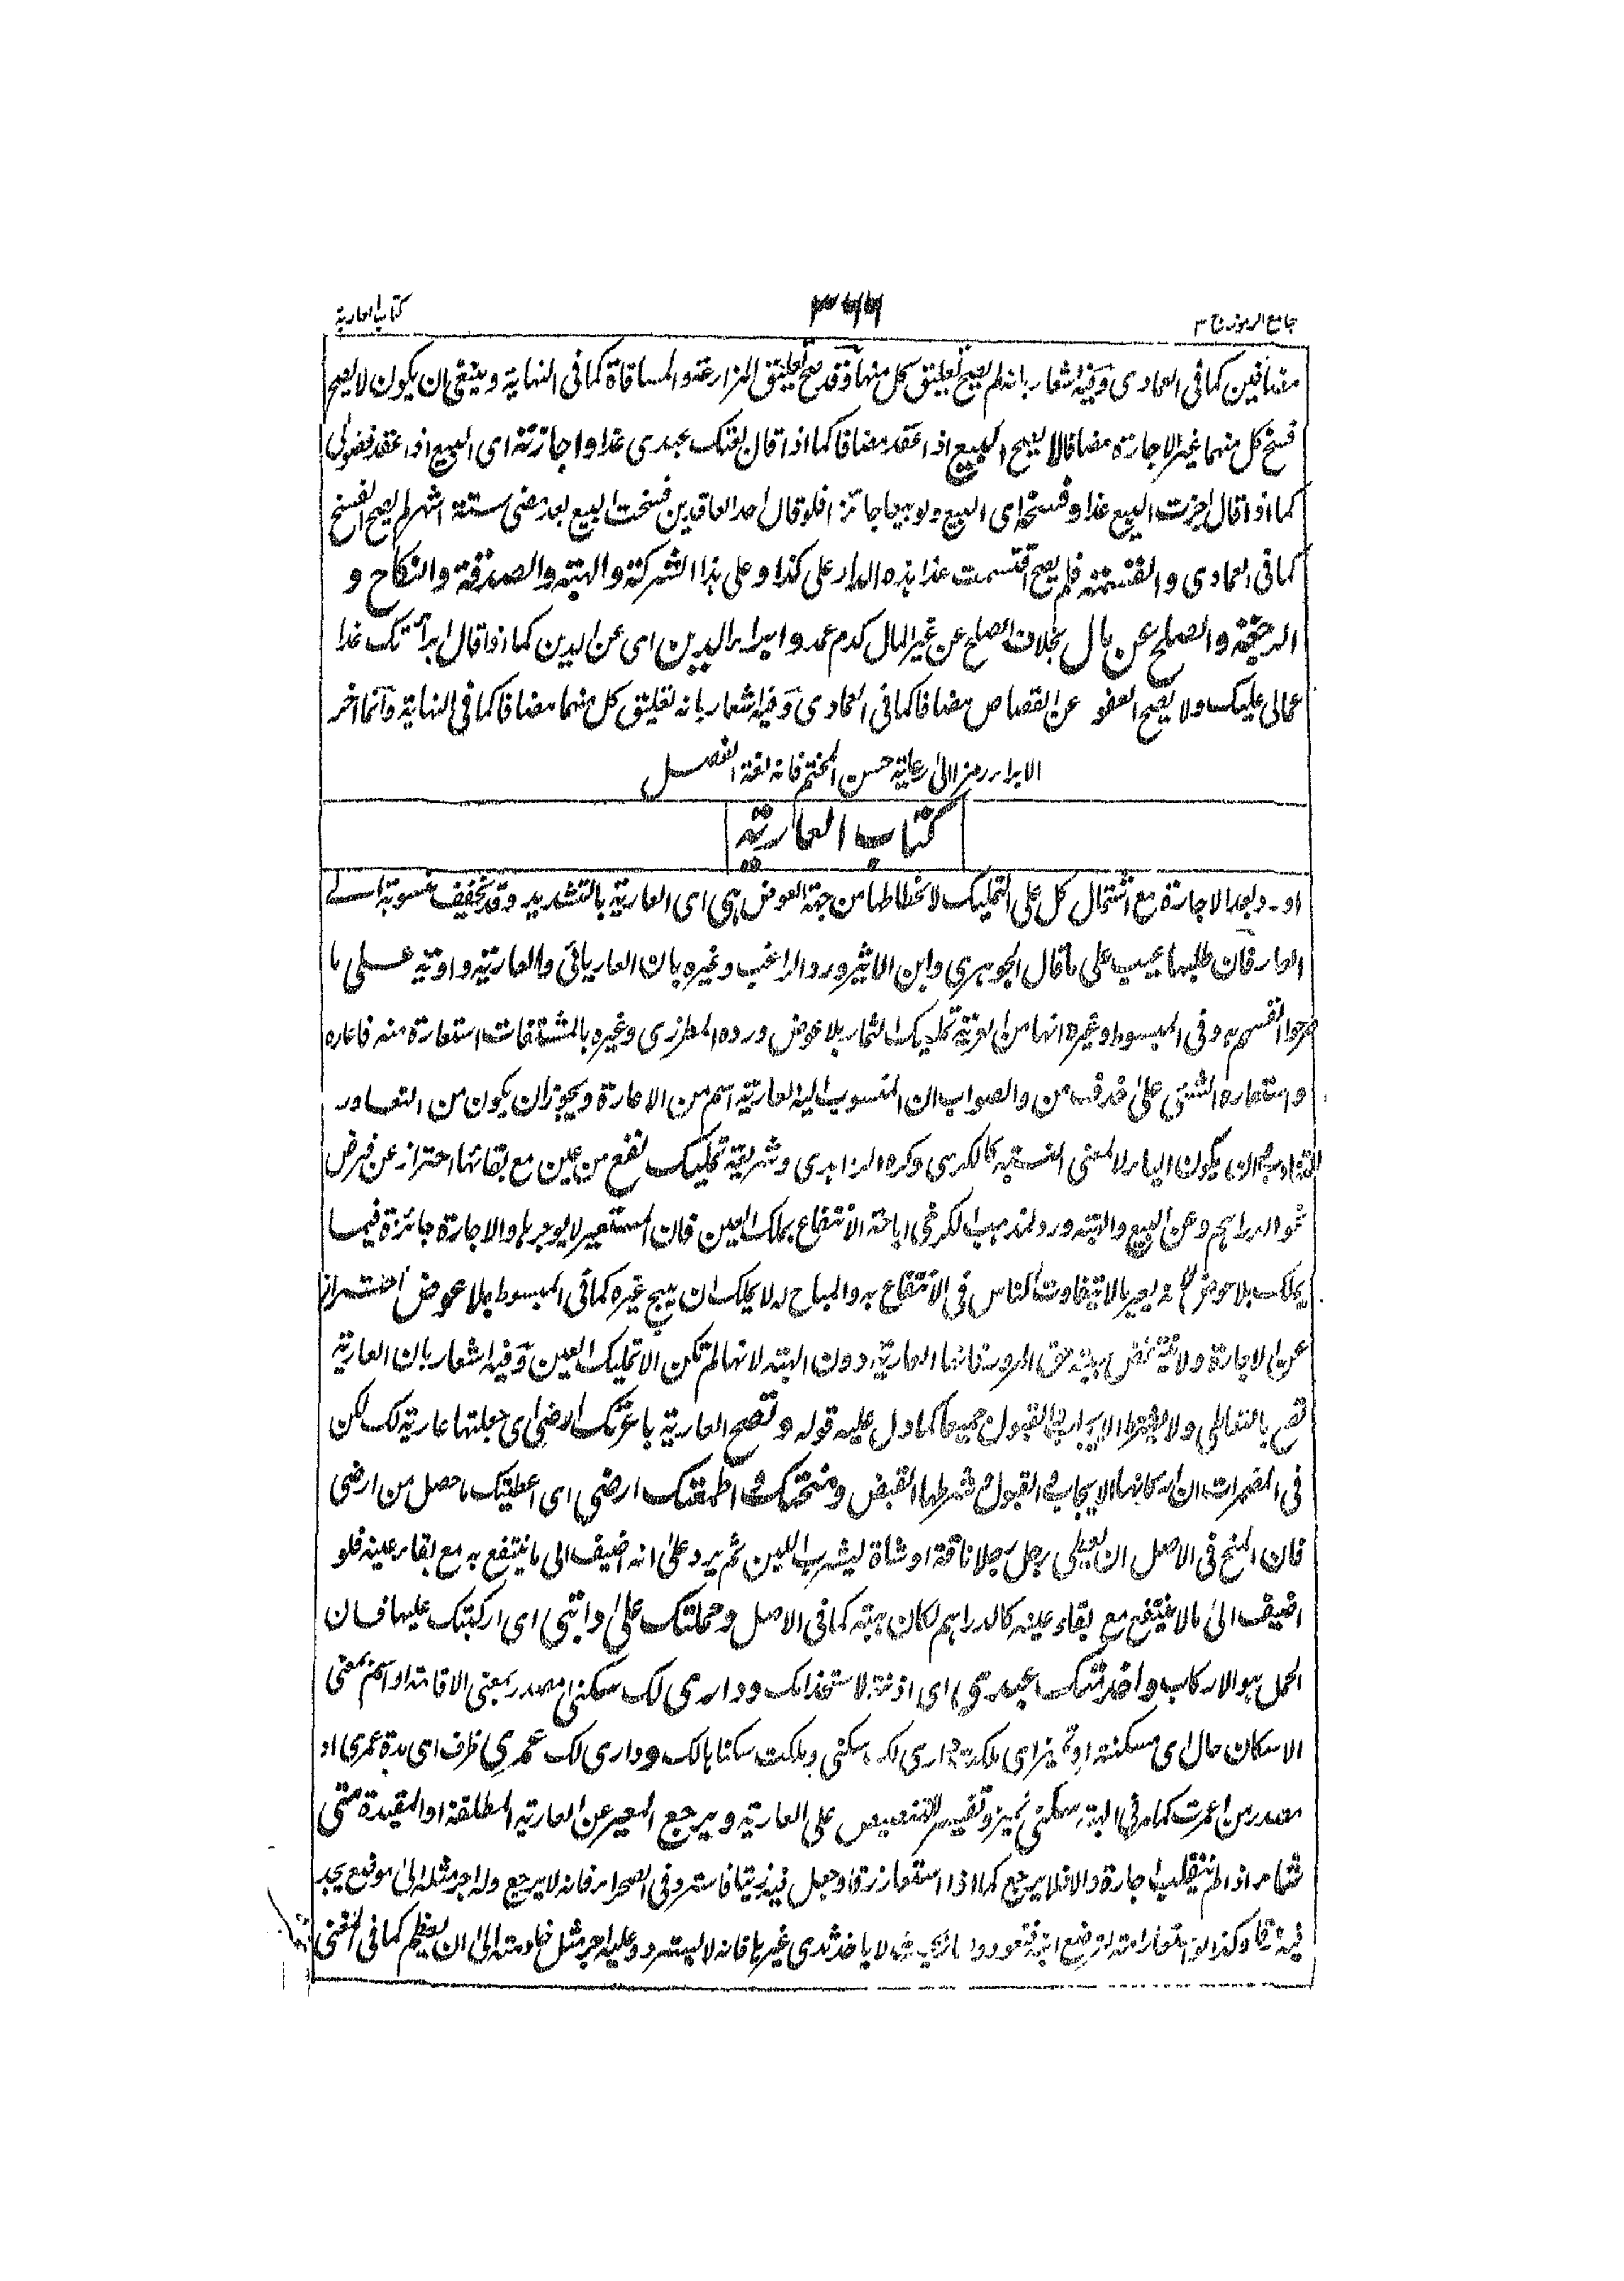 جامع الرموز ج ٣
٣٧٧
كتاب العارية
مضافين كما فى العمادى وفيه اشعار بانه لم يصح تعليق كل منها وقد صح تعليق المزارعة والمساقاة كما فى النهاية وينبغى ان يكون لا يصح
فسخ كل منهما غير الاجارة مضافا لا يصح البيع اذا عقد مضافا كما اذا قال بعتك عبدى غدا واجازته اى البيع اذا عقد فضولى
كما اذا قال اجزت البيع غدا وفسخه اى البيع ولو بيعا جائزا فلو قال احد العاقدين فسخت البيع بعد مضى ستة اشهر لم يصح الفسخ
كما فى العمادى والقسمة فلم يصح اقتسمت غدا هذه الدار على كذا وعلى هذا الشركة والهبة والصدقة والنكاح و
الرجعة والصلح عن مال بخلاف الصلح عن غير المال كدم عمد وابراء الدين اى عن الدين كما اذا قال ابرأتك غدا
عمالى عليك ولا يصح العفو عن القصاص مضافا كما فى العمادى وفيه اشعار بانه تعليق كل منهما مضافا كما فى النهاية وانما اخر
الابراء رمزا الى رعاية حسن المختم فانه لغة الفصل
كتاب العارية
اورد بعد الاجارة مع اشتمال كل على التمليك لانحطاطها من جهة العوض هى اى العارية بالتشديد وقد تخفف منسوبة الى
العار فان طلبها عيب على ما قال الجوهرى وابن الاثير ورد الراغب وغيره بان العار يائى والعارية واوية على ما
صرحوا انفسهم به وفى المبسوط وغيره انها من العرية تمليك الثمار بلا عوض ورده المطرزى وغيره بالمشتقات استعارة منه فاعاره
واستعاره الشئ على حذف من والصواب ان المنسوب اليه العارية اسم من الاعارة ويجوز ان يكون من التعاور
ان يكون الياء لا لمعنى النسبة كالكرسى وكره الزاهدى وشريعة تمليك نفع من عين مع بقائها احتراز عن قرض
نحو الدراهم وعن البيع والهبة ورد لمذهب الكرخى اباحة الانتفاع بملك العين فان المستعير لا يوجرها والاجارة جائزة فيما
يملك بلا عوض يعير ما لا يتفاوت الناس فى الانتفاع به والمباح له لا يملك ان يبيح غيره كما فى المبسوط بلا عوض احترازا
عن الاجارة ولا ينتقض بهبة حق المرور فانها العارية دون الهبة لانها لم تكن الا تمليك العين وفيه اشعار بان العارية
تصح بالتعاطى ولا يشترط الايجاب والقبول جميعا كما دل عليه قوله وتصح العارية باعرتك ارضى اى جعلتها عارية لك لكن
فى المضمرات ان اركانها الايجاب والقبول وشرطها القبض ومنحتك واطعمتك ارضى اى اعطيتك ما حصل من ارضى
فان المنح فى الاصل ان يعطى رجل رجلا ناقة او شاة ليشرب اللبن ثم يرد على انه اضيف الى ما ينتفع به مع بقاء عينه فلو
اضيف الى ما لا ينتفع مع بقاء عينه كالدراهم لكان هبة كما فى الاصل وحملتك على دابتى اى اركبتك عليها فان
الحمل هو الاركاب واخدمتك عبدى اى اذنته لاستخدامك ودارى لك سكنى مصدر بمعنى الاقامة او اسم بمعنى
الاسكان حال اى مسكنة او تميز اى ملكت دارى لك سكنى وملكت سكناها لك ودارى لك عمرى ظرف اى مدة عمرى او
مصدر من اعمرت كما مر فى الهبة سكنى تميز وتفسير للتنصيص على العارية ويرجع المعير عن العارية المطلقة او المقيدة متى
شاء اذا لم ينقلب اجارة والا فلا يرجع كما اذا استعار زقا وجعل فيه زيتا فاسترد فى الصحراء فانه لا يرجع وله اجر مثله الى موضع يجد
فيه زقا وكذا لو استعار امته لترضع ابنه فتعود لا ياخذ ثدى غيرها فانه لا يسترد وعليه اجر مثل خادمته الى ان يفطم كما فى المغنى